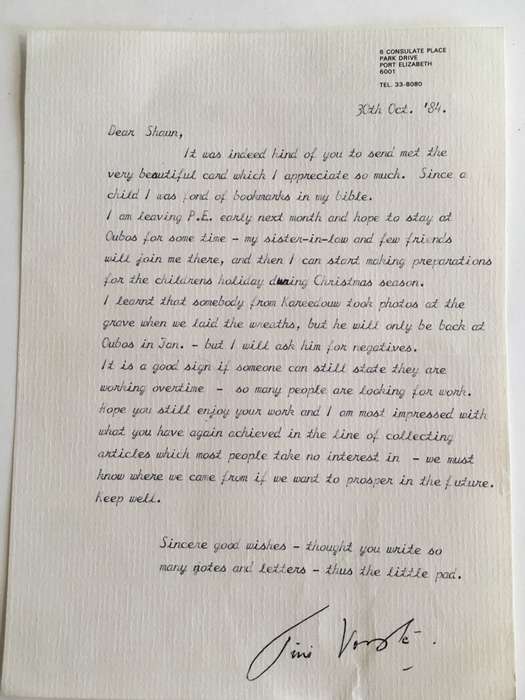 8 CONSULATE PLACE
PARK DRIVE
PORT ELIZABETH
6001
TEL. 33-8080
30th Oct. '84.
Dear Shaun,
It was indeed kind of you to send met the
very beautiful card which I appreciate so much. Since a
child I was fond of bookmarks in my bible.
I am leaving P.E. early next month and hope to stay at
Oubos for some time - my sister-in-law and few friends
will join me there, and then I can start making preparations
for the childrens holiday during Christmas season.
I learnt that somebody from Kareedouw took photos at the
grave when we laid the wreaths, but he will only be back at
Oubos in Jan. - but I will ask him for negatives.
It is a good sign if someone can still state they are
working overtime - so many people are looking for work.
Hope you still enjoy your work and I am most impressed with
what you have again achieved in the line of collecting
articles which most people take no interest in - we must
know where we came from if we want to prosper in the future.
Keep well.
Sincere good wishes - thought you write so
many notes and letters - thus the little pad.
Tini Vorster.